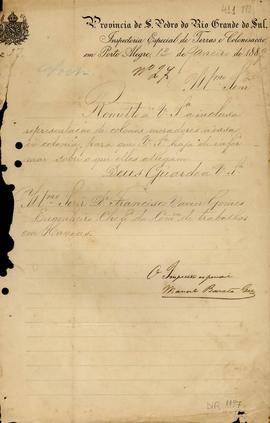 Provincia de S. Pedro do Rio Grande do Sul,
Inspectoria Especial de Terras e Colonisação
em Porto Alegre, 12 de Janeiro de 188
Nº 27
Illmo Senr
Remetto a V. Sa a inclusa
representação de colonos moradores
colonia, para que V. Sa haja de infor
mar sobre o que elles allegam.
Deus Guarde a V. Sa
Illmo Senr Dr Francisco Gomes
Engenheiro Chefe da Comm de trabalhos
em
O Inspector especial
Manoel Barata
DIR 1187